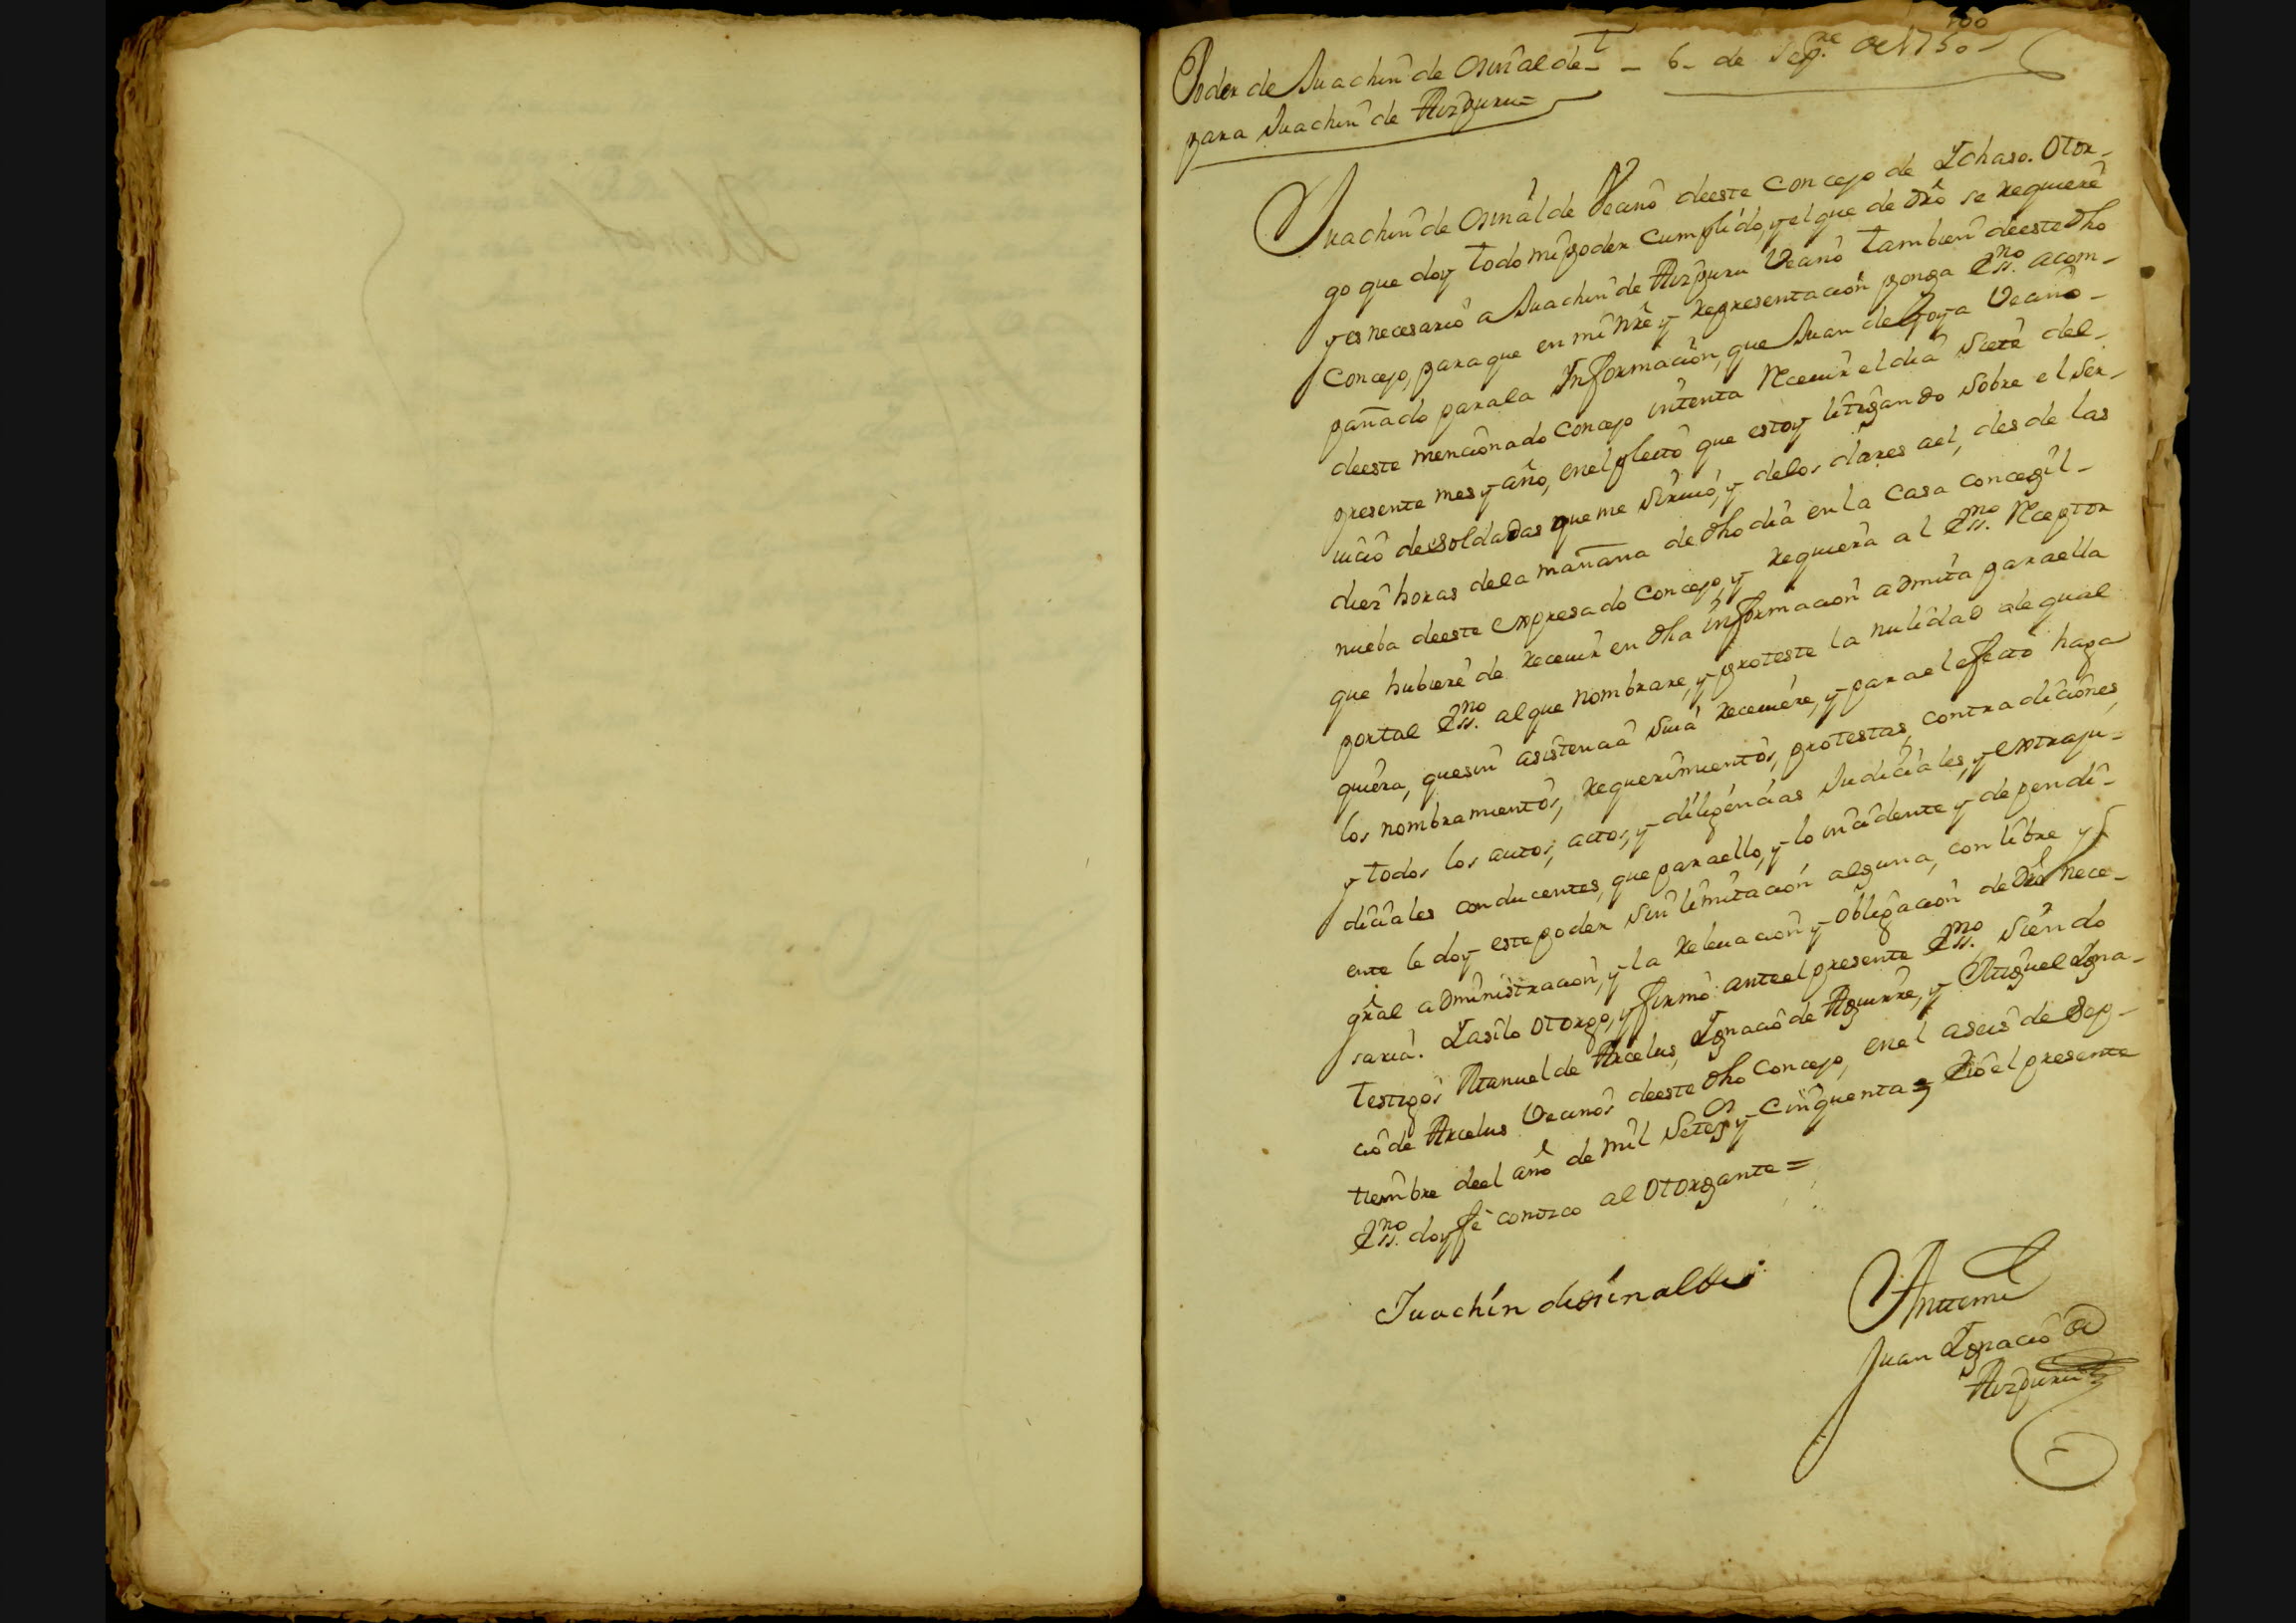 100
Poder de Juachin de Osinalde - 6 - de Sep.re de 1750
para Juachin de Aizpuru =
Juachin de Osinalde Vecino deeste Concejo de Ichaso. Otor-
go que doy todo mi poder cumplido, y el que de dro se requiere
y es necesario a Juachin de Aizpuru Vecino tambien deeste dho
Concejo, para que en mi nre y representacion ponga Essno. acom-
pañado parala Informacion, que Juan de Goya Vecino
deeste mencionado Concejo intenta Receuir el dia siete del
presente mes y año, enel pleito que estoy litigando sobre el ser-
uicio de soldadas que me siruió, y delos dares ael, desde las
diez horas dela mañana de dho dia en la Casa Concegil
nueba deeste expresado Concejo, y requiera al Essno. Receptor
que hubiere de receuir en dha informacion admita paraella
portal Essno. alque nombrare, y proteste la nulidad dequal
quiera, quesin asistencia suia receuiere, y para el efecto haga
los nombramientos, requerimientos, protestas, contradiciones,
y todos los autos, actos, y diligencias Judiciales, y extraju-
diciales conducentes, que paraello, y lo incidente y dependi-
ente le doy este poder sin limitacion alguna, con libre y
gral administracion, y la releuacion y obligacion de dro nece-
saria. I asilo otorgo, y firmo anteel presente Essno. siendo
testigos Manuel de Arcelus, Ignacio de Aguirre, y Miguel Igna-
cio de Arcelus Vecinos deeste dho Concejo, enel aseis de Sep-
tiembre deel año de mil setecos y cinquenta = Eio el presente
Essno. doy fe conozco al otorgante =
Juachin deosinalde
Antemi
Juan Ignacio de
Aizpuru